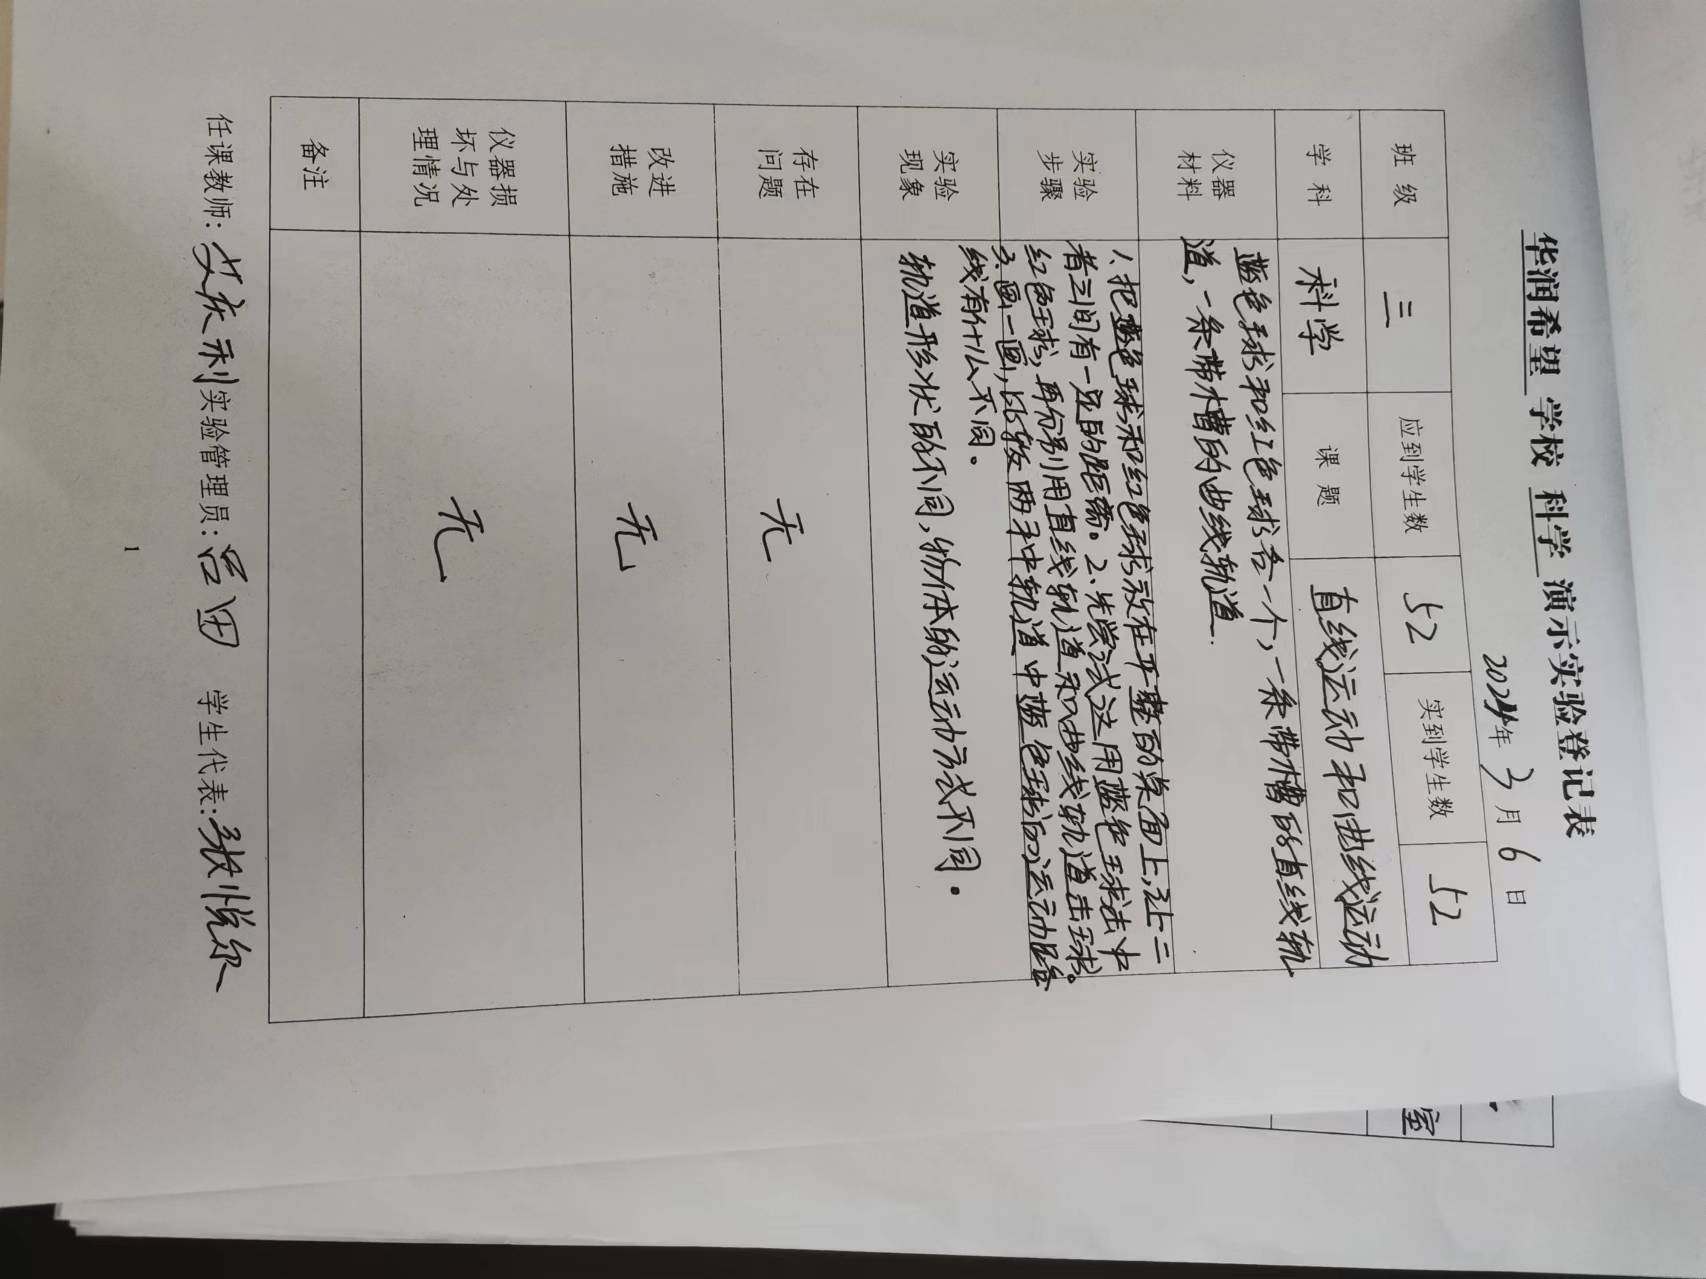 华润希望 学校 科学 演示实验登记表
2024年 3月 6日
班 级 三 应到学生数 52 实到学生数 52
学 科 科学 课 题 直线运动和曲线运动
仪器材料
蓝色球和红色球各一个,一条带槽的直线轨
道,一条带槽的曲线轨道.
实验步骤
1、把蓝色球和红色球放在平整的桌面上,让二
者之间有一定的距离。2.先尝试这用蓝色球击中
红色球,再分别用直线轨道和曲线轨道击球。
3.画一画,比较两种轨道中蓝色球的运动路
线有什么不同。
实验现象
轨道形状的不同,物体的运动方式不同。
存在问题 无
改进措施 无
仪器损坏与处理情况 无
备注
任课教师: 艾庆利 实验管理员: 吕田 学生代表: 悦尔
1
室